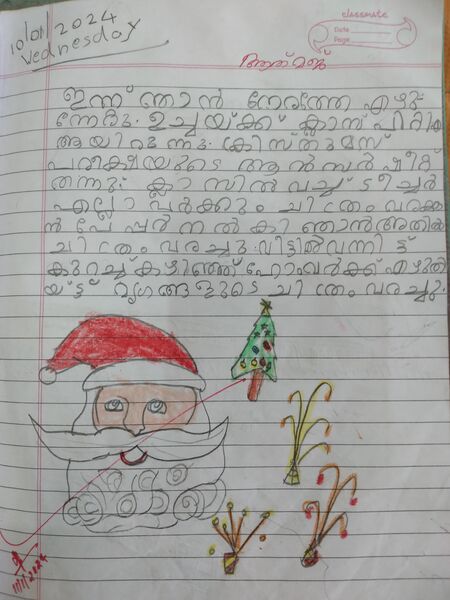 classmate
Date
Page
10/01/2024
Wednesday
ഇന്ന് ഞാൻ നേരത്തേ എഴു
ന്നേറ്റു. ഉച്ചയ്ക്ക് ക്ലാസ് പിരിയ
ആയിരുന്നു. ക്രിസ്തുമസ്
പരീക്ഷയുടെ ആൻസർ ഷീറ്റ്
തന്നു. ക്ലാസിൽ വച്ച് ടീച്ചർ
എല്ലാവർക്കും ചിത്രം വരക്കാ
ൻ പേപ്പർ നൽകി ഞാൻ അതിൽ
ചിത്രം വരച്ചു. വീട്ടിൽ വന്നിട്ട്
കുറച്ച് കഴിഞ്ഞ് ഹോംവർക്ക് എഴുതി
യിട്ട് മൃഗങ്ങളുടെ ചിത്രം വരച്ചു.
11/1/2024